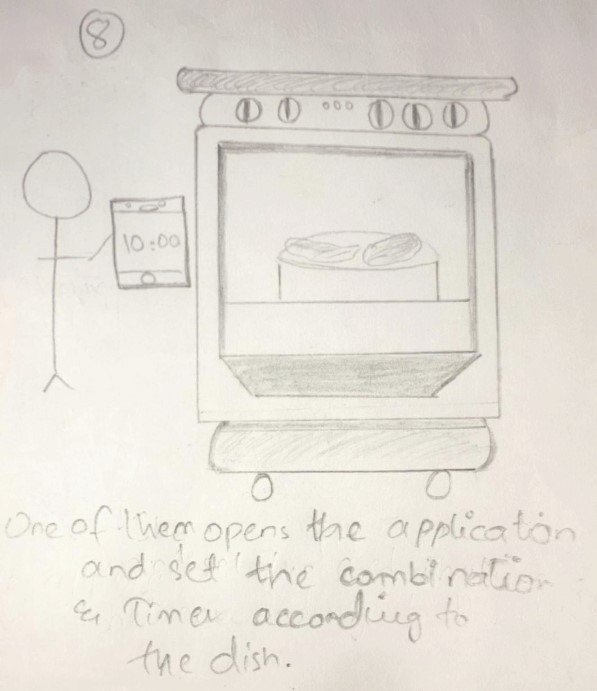 8
10:00
One of them opens the application
and set the combination
& Timer according to
the dish.